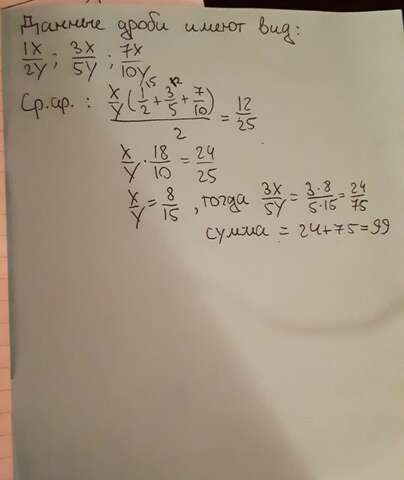 Данные дроби имеют вид:
1x/2y ; 3x/5y ; 7x/10y
Ср.ар. : x/y(1/2+3/5+7/10)/2 = 12/25
x/y · 18/10 = 24/25
x/y = 8/15 , тогда 3x/5y = 3·8/5·15 = 24/75
сумма = 24+75=99